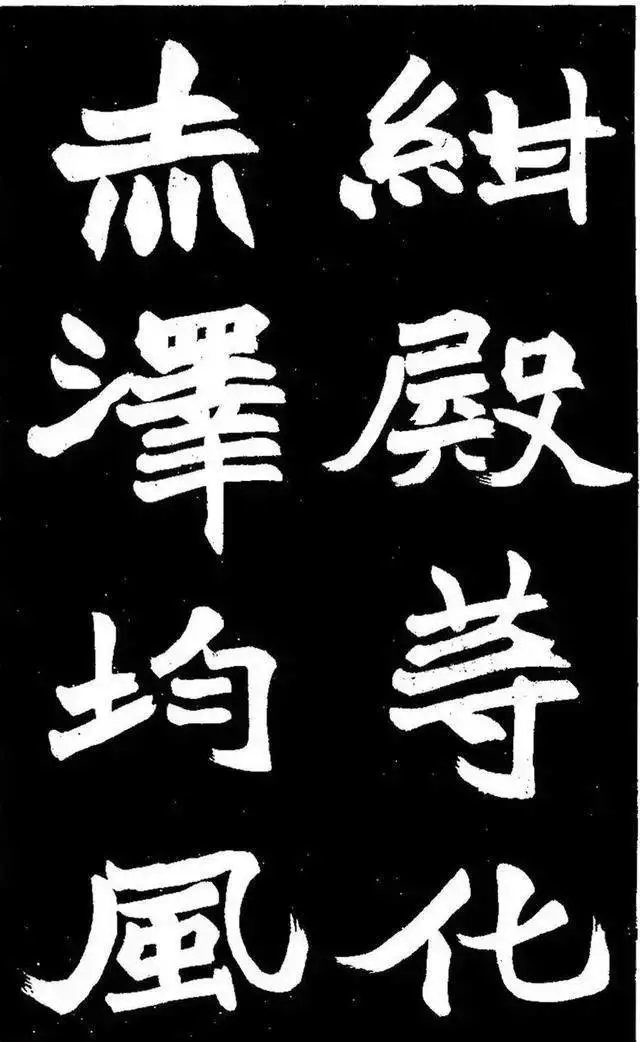 紺殿等化
赤澤均風